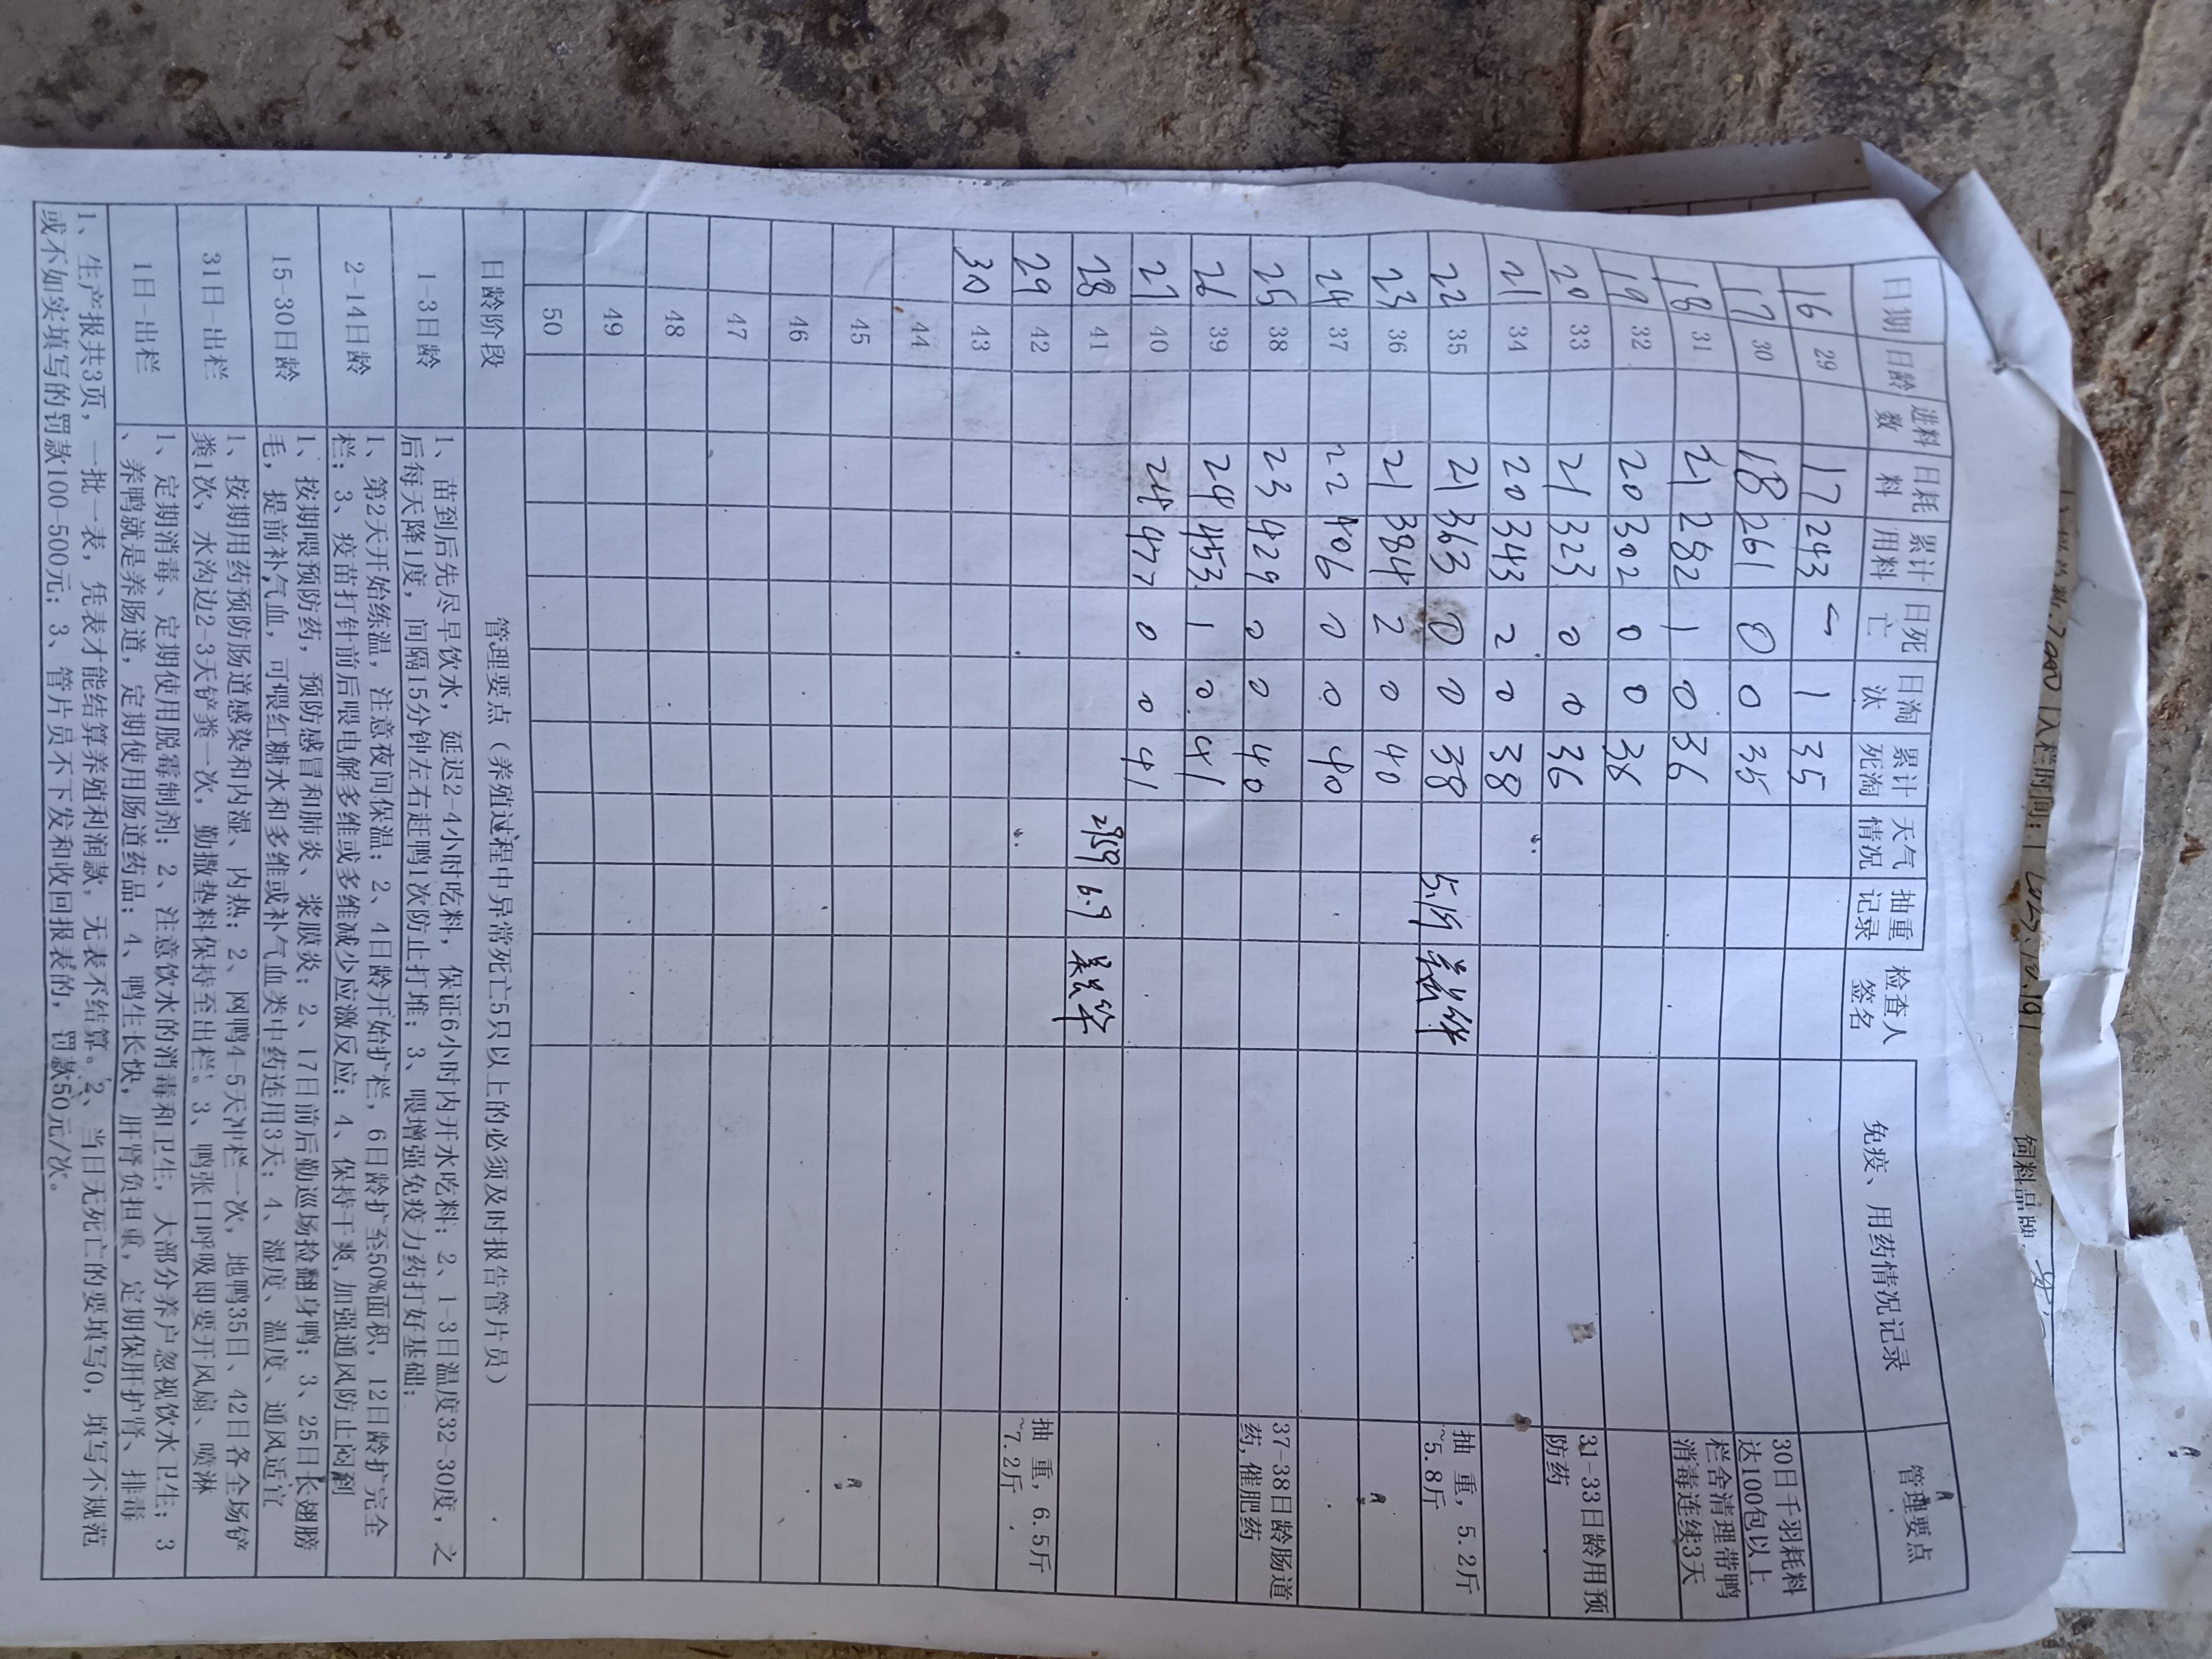 日期 日龄 进料数 日耗料 累计用料 日死亡 日淘汰 累计死淘 天气情况 抽重记录 检查人签名 免疫、用药情况记录 管理要点
16 29 17 243 1 35
17 30 18 261 0 0 35 30日千羽耗料达100包以上
18 31 21 282 1 0 36 栏舍清理带鸭消毒连续3天
19 32 20 302 0 0 36
20 33 21 323 0 0 36 31-33日龄用预防药
21 34 20 343 2 0 38
22 35 21 363 0 0 38 抽重，5.2斤~5.8斤
23 36 21 384 2 0 40
24 37 22 406 0 0 40
25 38 23 429 0 0 40 37-38日龄肠道药，催肥药
26 39 24 453 1 0 41
27 40 24 477 0 0 41
28 41 6.9
29 42 抽重，6.5斤~7.2斤
30 43
44
45
46
47
48
49
50
日龄阶段 管理要点（养殖过程中异常死亡5只以上的必须及时报告管片员）
1-3日龄 1、苗到后先尽早饮水，延迟2-4小时吃料，保证6小时内开水吃料；2、1-3日温度32-30度，之
后每天降1度，间隔15分钟左右赶鸭1次防止打堆；3、喂增强免疫力药打好基础；
2-14日龄 1、第2天开始练温，注意夜间保温；2、4日龄开始扩栏，6日龄扩至50%面积，12日龄扩完全
栏；3、疫苗打针前后喂电解多维或多维减少应激反应；4、保持干爽，加强通风防止闷到
15-30日龄 1、按期喂预防药，预防感冒和肺炎、浆膜炎；2、17日前后勤巡场捡翻身鸭；3、25日长翅膀
毛，提前补气血，可喂红糖水和多维或补气血类中药连用3天；4、湿度、温度、通风适宜
31日-出栏 1、按期用药预防肠道感染和内湿、内热；2、网鸭4-5天冲栏一次，地鸭35日、42日各全场铲
粪1次，水沟边2-3天铲粪一次，勤撒垫料保持至出栏。3、鸭张口呼吸即要开风扇、喷淋
1日-出栏 1、定期消毒、定期使用脱霉制剂；2、注意饮水的消毒和卫生，大部分养户忽视饮水卫生；3
、养鸭就是养肠道，定期使用肠道药品；4、鸭生长快，肝肾负担重，定期保肝护肾、排毒
1、生产报共3页，一批一表，凭表才能结算养殖利润款，无表不结算。2、当日无死亡的要填写0，填写不规范
或不如实填写的罚款100-500元；3、管片员不下发和收回报表的，罚款50元/次。
入栏时间：
饲料品牌